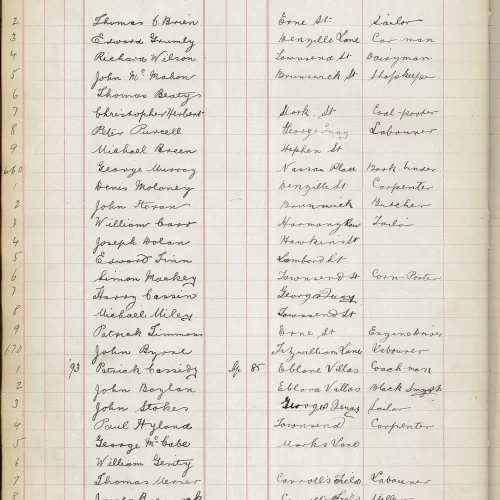 2 Thomas O'Brien Erne St Sailor
3 Edward Grumly Denzille Lane Car man
4 Richard Wilson Townsend St Dairyman
5 John McMahon Brunswick St Shopkeeper
6 Thomas Beatys
7 Christopher Herbert Mark St Coal-porter
8 Peter Purcell George's Labourer
9 Michael Breen Stephen St
660 George Murray Nassau Place Book-binder
1 Denis Moloney Denzille St Carpenter
2 John Horan Brunswick Butcher
3 William Carr Harmony Row Tailor
4 Joseph Dolan Hawkins St
5 Edward Finn Lombard St
6 Simon Mackey Townsend St Corn Porter
7 Harry Cassin George's Quay
8 Michael Miley Townsend St
9 Patrick Timmons Erne St Engine Driver
670 John Byrne Fitzwilliam Lane Labourer
1 '93 Patrick Cassidy Ap 85 Eblana Villas Coachman
2 John Boylan Eblana Villas Black Smyth
3 John Stokes George's Quay Sailor
4 Paul Hyland Townsend Carpenter
5 George McCabe Marks Lane
6 William Gerity
7 Thomas Mercer Carroll's Field Labourer
8 James